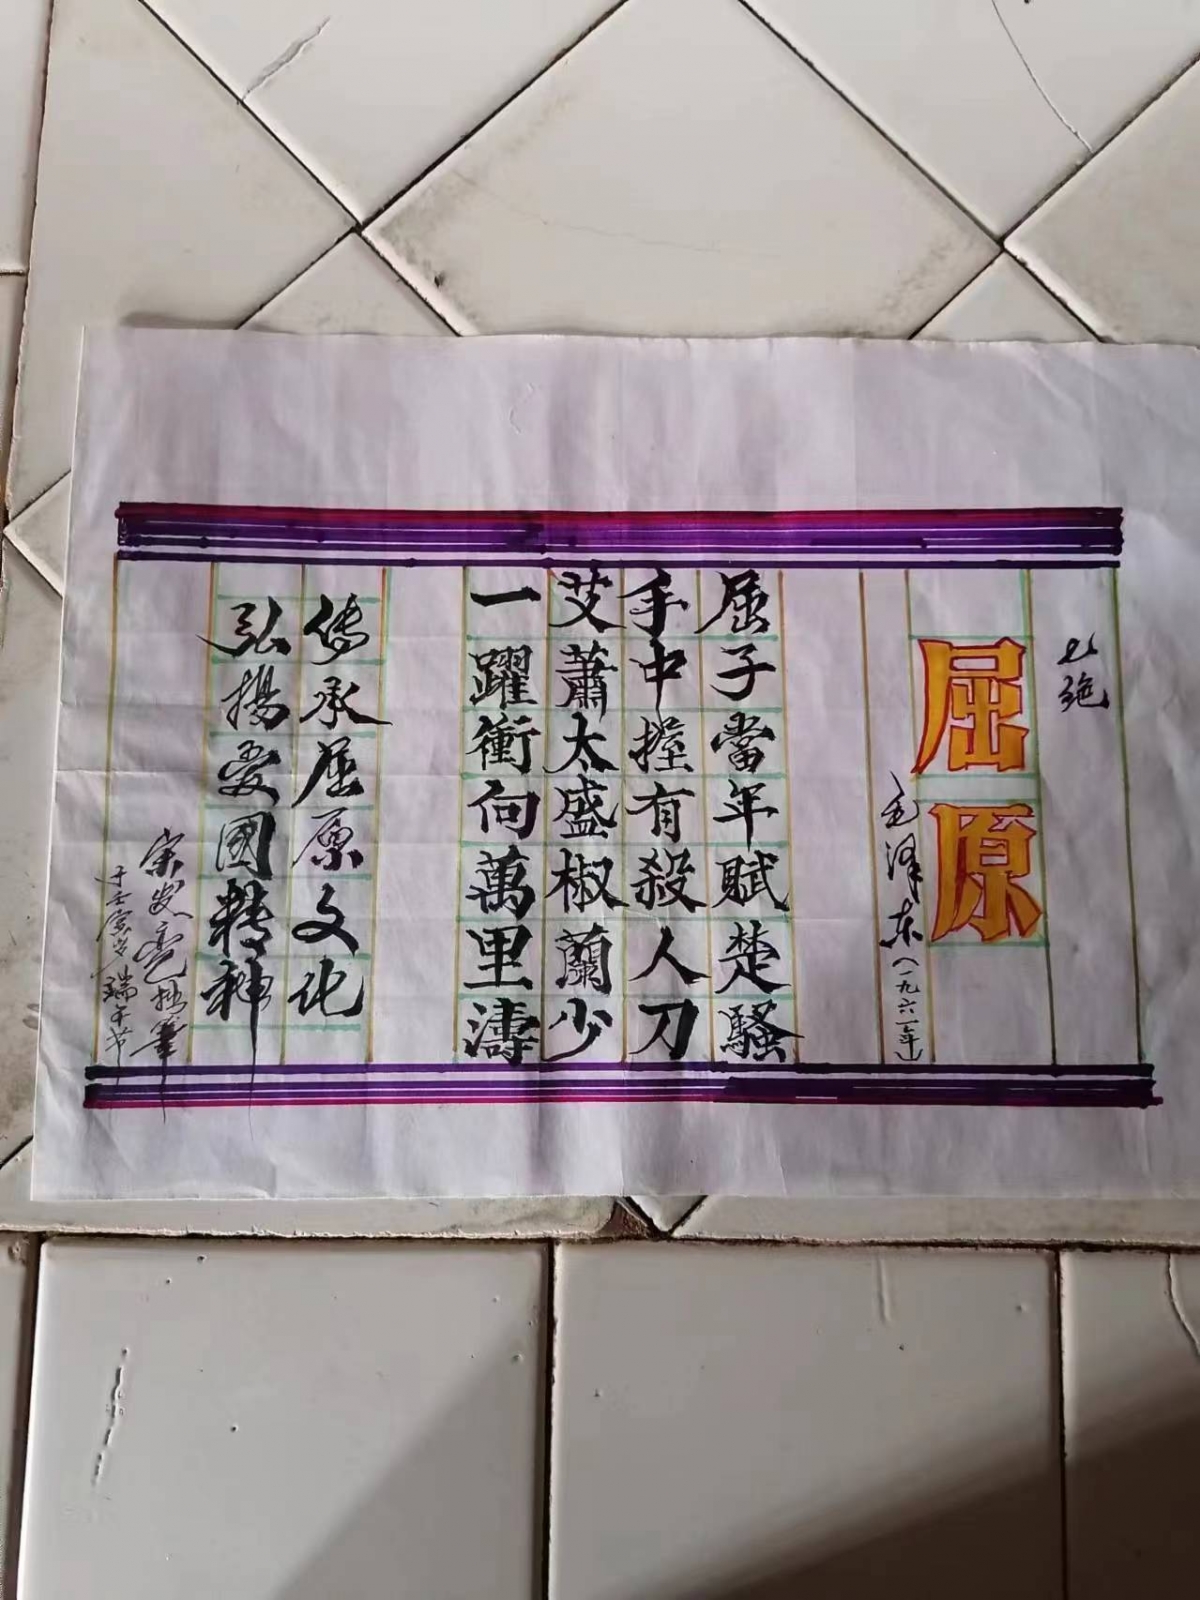 七绝
屈原
毛泽东（一九六一年）
屈子當年賦楚騷
手中握有殺人刀
艾蕭太盛椒蘭少
一躍衝向萬里濤
传承屈原文化
弘揚爱國精神
宋发亮拙筆
于壬寅岁端午节